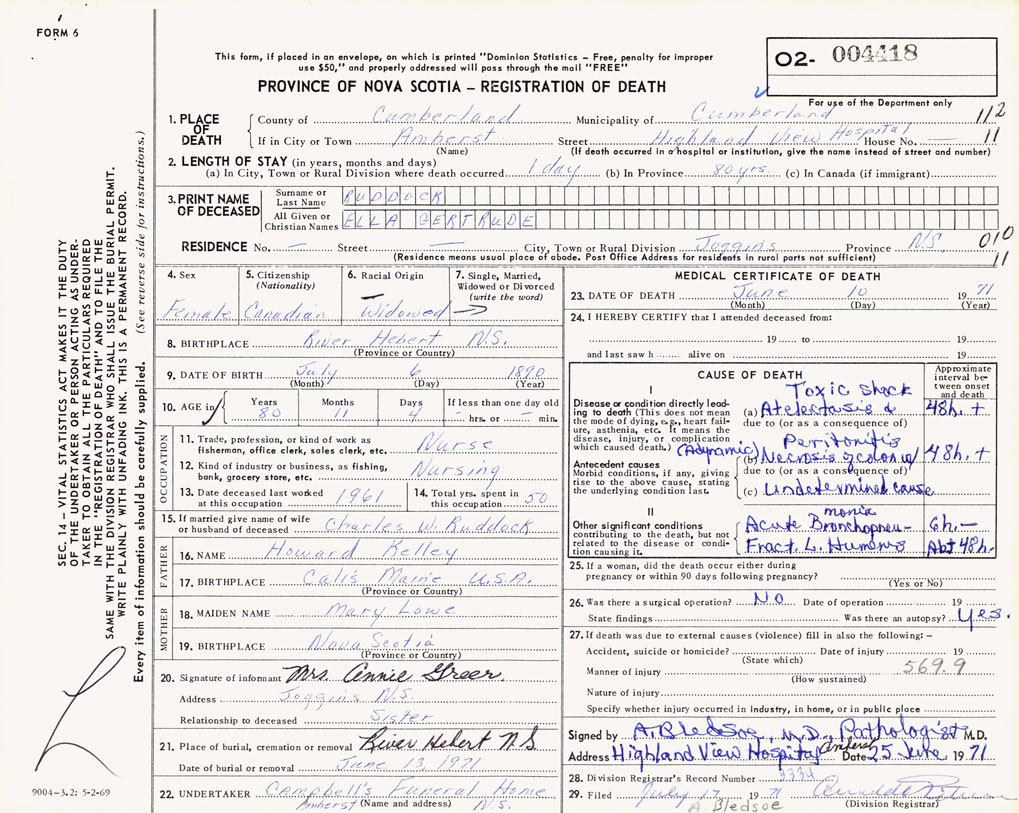 FORM 6
This form, if placed in an envelope, on which is printed "Dominion Statistics - Free, penalty for improper
use $50," and properly addressed will pass through the mail "FREE"
O2- 004418
PROVINCE OF NOVA SCOTIA - REGISTRATION OF DEATH
For use of the Department only
1. PLACE OF DEATH
County of Cumberland Municipality of Cumberland 112
If in City or Town Amherst Street Highland View Hospital House No. — 11
(Name) (If death occurred in a hospital or institution, give the name instead of street and number)
2. LENGTH OF STAY (in years, months and days)
(a) In City, Town or Rural Division where death occurred 1 day (b) In Province 80 yrs. (c) In Canada (if immigrant)
3. PRINT NAME OF DECEASED
Surname or Last Name RUDDOCK
All Given or Christian Names ELLA GERTRUDE
RESIDENCE No. — Street — City, Town or Rural Division Joggins Province N.S. 010
(Residence means usual place of abode. Post Office Address for residents in rural parts not sufficient) 11
4. Sex
Female
5. Citizenship
(Nationality)
Canadian
6. Racial Origin
Widowed
7. Single, Married,
Widowed or Divorced
(write the word)
8. BIRTHPLACE River Hebert N.S.
(Province or Country)
9. DATE OF BIRTH July 6 1890
(Month) (Day) (Year)
10. AGE in
Years 80
Months 11
Days 4
If less than one day old
- hrs. or - min.
OCCUPATION
11. Trade, profession, or kind of work as
fisherman, office clerk, sales clerk, etc. Nurse
12. Kind of industry or business, as fishing,
bank, grocery store, etc. Nursing
13. Date deceased last worked
at this occupation 1961
14. Total yrs. spent in
this occupation 50
15. If married give name of wife
or husband of deceased Charles W. Ruddock
FATHER
16. NAME Howard Kelley
17. BIRTHPLACE Calis Maine U.S.A.
(Province or Country)
MOTHER
18. MAIDEN NAME Mary Lowe
19. BIRTHPLACE Nova Scotia
(Province or Country)
20. Signature of informant Mrs. Annie Greer.
Address Joggins N.S.
Relationship to deceased Sister
21. Place of burial, cremation or removal River Hebert N S
Date of burial or removal June 13, 1971
22. UNDERTAKER Campbell's Funeral Home
(Name and address)
Amherst N.S.
MEDICAL CERTIFICATE OF DEATH
23. DATE OF DEATH June 10 1971
(Month) (Day) (Year)
24. I HEREBY CERTIFY that I attended deceased from:
19 to 19
and last saw h alive on 19
CAUSE OF DEATH
Approximate
interval be-
tween onset
and death
I
Disease or condition directly lead-
ing to death (This does not mean
the mode of dying, e.g., heart fail-
ure, asthenia, etc. It means the
disease, injury, or complication
which caused death.)
Toxic Shock
(a) Atelectasis & 48h. +
due to (or as a consequence of)
Peritonitis
(Adynamic)
(b) Necrosis of colon w/ 48h. +
due to (or as a consequence of)
Antecedent causes
Morbid conditions, if any, giving
rise to the above cause, stating
the underlying condition last.
(c) Undetermined cause
II
Other significant conditions
contributing to the death, but not
related to the disease or condi-
tion causing it.
monia
Acute Bronchopneu- 6h.-
Fract. L. Humerus Abt 48h-
25. If a woman, did the death occur either during
pregnancy or within 90 days following pregnancy?
(Yes or No)
26. Was there a surgical operation? No Date of operation 19
State findings Was there an autopsy? Yes.
27. If death was due to external causes (violence) fill in also the following:-
Accident, suicide or homicide? Date of injury 19
(State which)
569.9
Manner of injury
(How sustained)
Nature of injury
Specify whether injury occurred in industry, in home, or in public place
Signed by A. Bledsoe, M.D., Pathologist M.D.
Address Highland View Hospital Amherst Date 25 June 1971
28. Division Registrar's Record Number 3334
29. Filed July 17 1971
(Division Registrar)
A Bledsoe
SEC. 14 - VITAL STATISTICS ACT MAKES IT THE DUTY
OF THE UNDERTAKER OR PERSON ACTING AS UNDER-
TAKER TO OBTAIN ALL THE PARTICULARS REQUIRED
IN THE "REGISTRATION OF DEATH" AND TO FILE THE
SAME WITH THE DIVISION REGISTRAR WHO SHALL ISSUE THE BURIAL PERMIT.
WRITE PLAINLY WITH UNFADING INK. THIS IS A PERMANENT RECORD.
Every item of information should be carefully supplied. (See reverse side for instructions.)
9004-3.2: 5-2-69